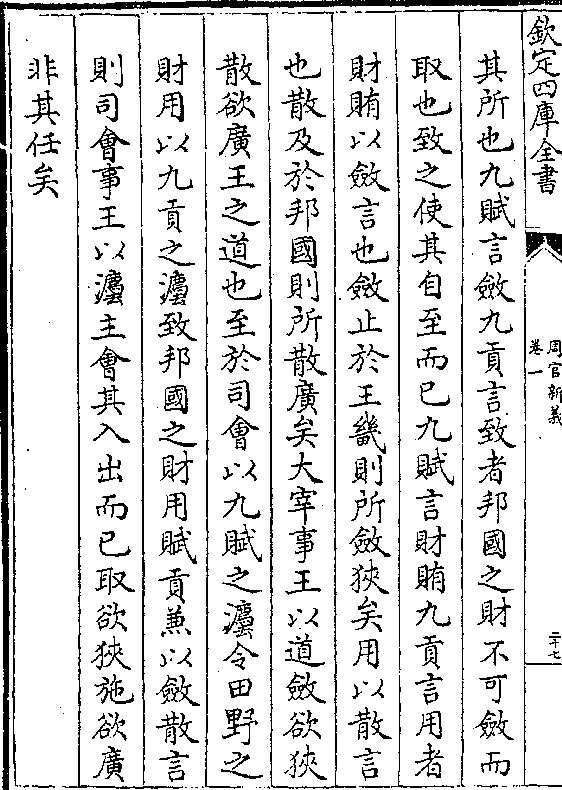 欽定四庫全書
周官新義
卷一
二十七
其所也九賦言斂九貢言致者邦國之財不可斂而
取也致之使其自至而已九賦言財賄九貢言用者
財賄以斂言也斂止於王畿則所斂狹矣用以散言
也散及於邦國則所散廣矣大宰事王以道斂欲狹
散欲廣王之道也至於司會以九賦之灋令田野之
財用以九貢之灋致邦國之財用賦貢兼以斂散言
則司會事王以灋主會其入出而已取欲狹施欲廣
非其任矣